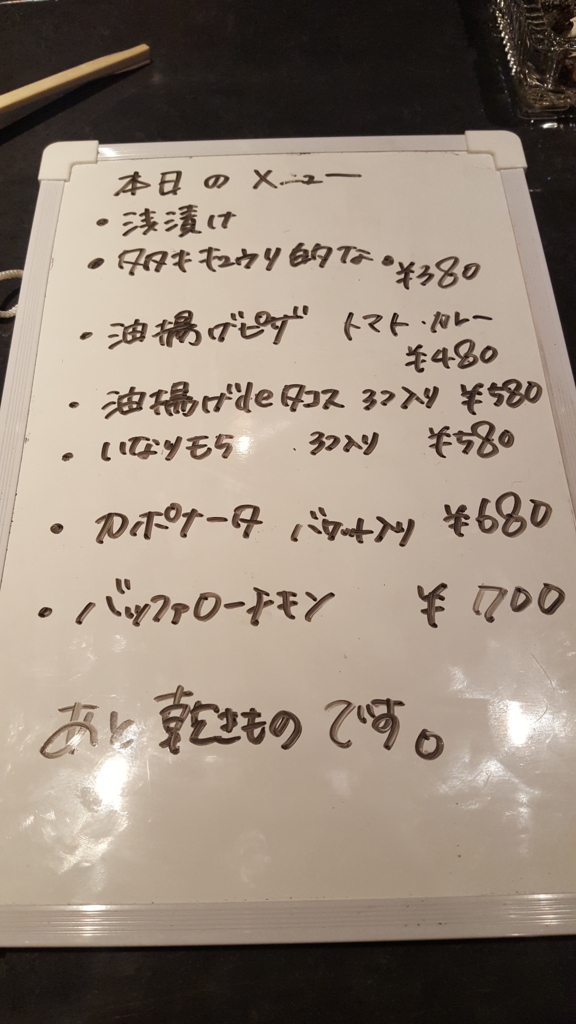 本日のメニュー
・浅漬け
・タタキキュウリ的な。 ¥380
・油揚げピザ トマト・カレー
¥480
・油揚げdeタコス 3コ入り ¥580
・いなりもち 3コ入り ¥580
・カポナータ バケット入り ¥680
・バッファローチキン ¥700
あと乾きものです。